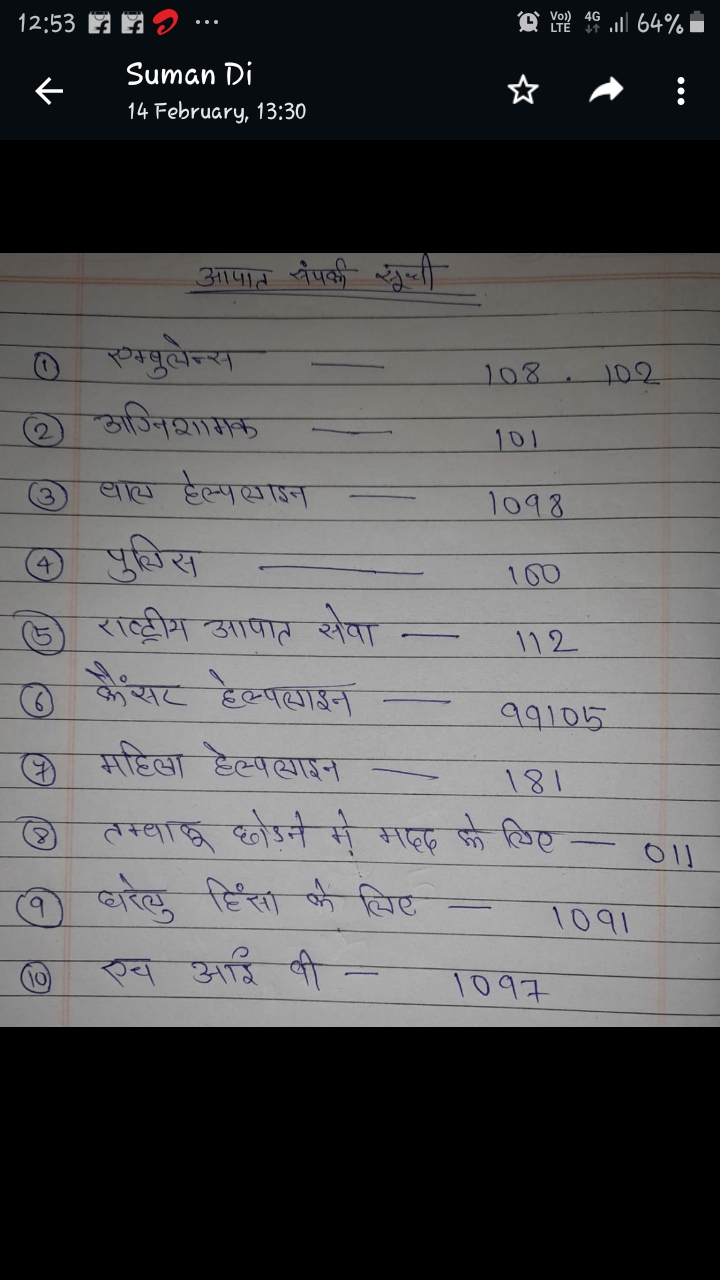 12:53 ... Vo)) LTE 4G 64%
Suman Di
14 February, 13:30
आपात संपर्क सूची
① एम्बुलेन्स — 108 . 102
② अग्निशामक — 101
③ बाल हेल्पलाइन — 1098
④ पुलिस — 100
⑤ राष्ट्रीय आपात सेवा — 112
⑥ कैंसर हेल्पलाइन — 99105
⑦ महिला हेल्पलाइन — 181
⑧ तम्बाकू छोड़ने में मदद के लिए — 011
⑨ घरेलु हिंसा के लिए — 1091
⑩ एच आई वी — 1097